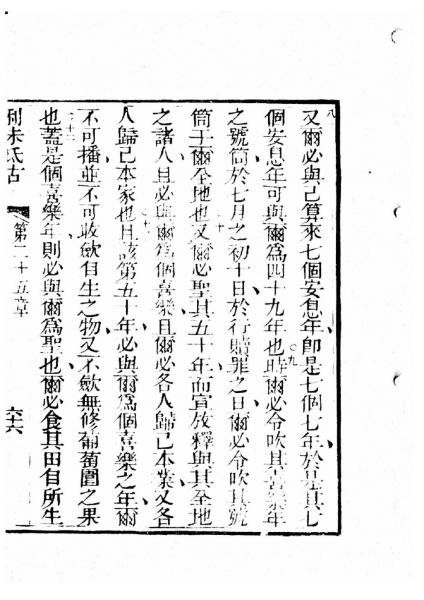 八
又爾必與己算來七個安息年卽是七個七年於是其七
個安息年可與爾爲四十九年也○九時爾必令吹其喜樂年
之號筒於七月之初十日於行贖罪之日爾必令吹其號
筒于爾全地也○十又爾必聖其五十年而宣放釋與其全地
之諸人且必與爾爲個喜樂且爾必各人歸己本業又各
人歸己本家也○十一且該第五十年必與爾爲個喜樂之年爾
不可播並不可收歛自生之物又不歛無修葡萄園之果
也○十二蓋是個喜樂年則必與爾爲聖也爾必食其田自所生
利未氏古 第二十五章 六十六